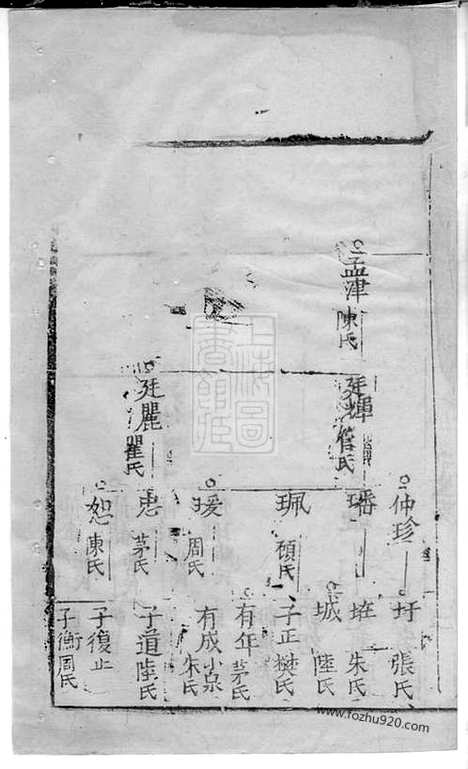 孟津 陳氏
廷輝 管氏
廷麗 瞿氏
仲珍
璠
珮 顧氏
瑗 周氏
惠 茅氏
恕 陳氏
圩 張氏
垤 朱氏
城 陸氏
子正 樊氏
有年 茅氏
有成 小泉 朱氏
子道 陸氏
子復 止
子衡 周氏
上海圖書館藏
www.fozhu920.com